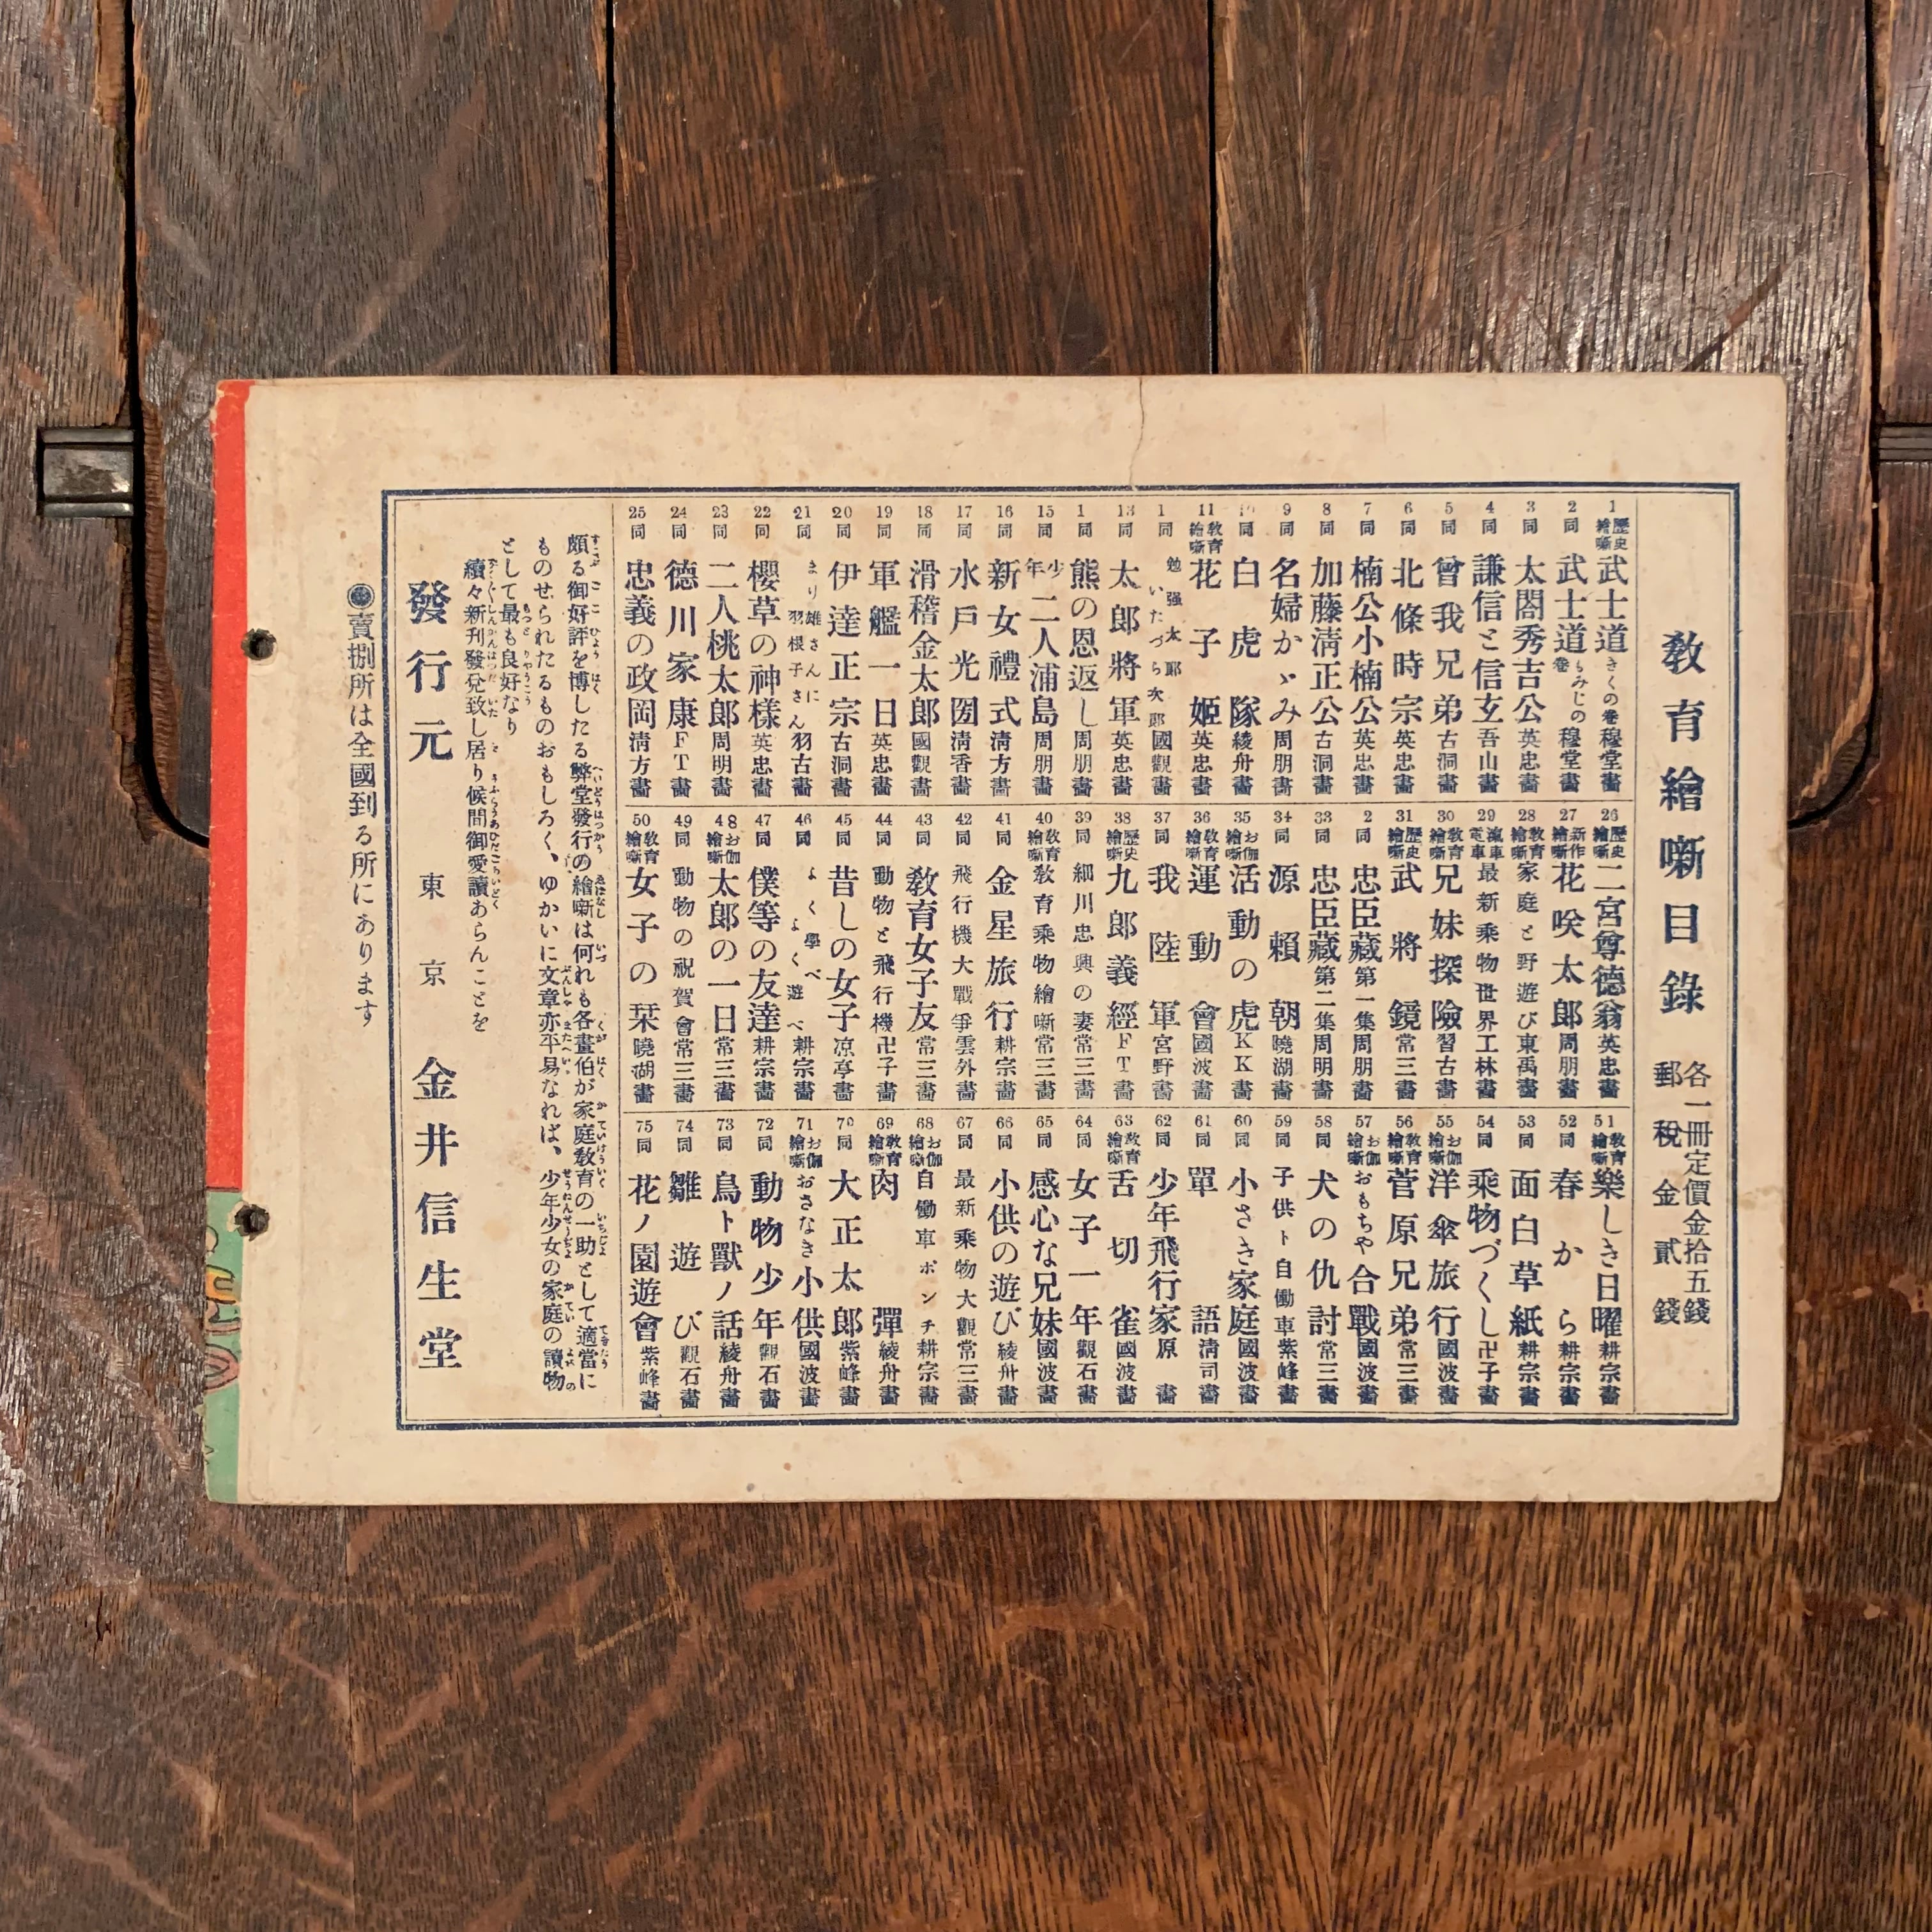 教育繪噺目錄
各一冊定價金拾五錢
郵稅金貳錢
1 歷史繪噺 武士道 きくの巻 穆堂畵
2 同 武士道 もみじの巻 穆堂畵
3 同 太閤秀吉公 英忠畵
4 同 謙信と信玄 吾山畵
5 同 曾我兄弟 古洞畵
6 同 北條時宗 英忠畵
7 同 楠公小楠公 英忠畵
8 同 加藤淸正公 古洞畵
9 同 名婦かゞみ 周朋畵
同 白虎隊 綾舟畵
11 敎育繪噺 花子姬 英忠畵
1 同 勉强太郎 いたづら次郎 國觀畵
13 同 太郎將軍 英忠畵
1 同 熊の恩返し 周朋畵
15 同 少年二人浦島 周朋畵
16 同 新女禮式 淸方畵
17 同 水戶光圀 淸香畵
18 同 滑稽金太郎 國觀畵
19 同 軍艦一日 英忠畵
20 同 伊達正宗 古洞畵
21 同 まり雄さんに羽根子さん 羽古畵
22 同 櫻草の神樣 英忠畵
23 同 二人桃太郎 周明畵
24 同 德川家康 FT畵
25 同 忠義の政岡 淸方畵
26 歷史繪噺 二宮尊德翁 英忠畵
27 新作繪噺 花咲太郎 周朋畵
28 敎育繪噺 家庭と野遊び 東禹畵
29 滊車電車 最新乘物世界 工林畵
30 敎育繪噺 兄妹探險 習古畵
31 歷史繪噺 武將鏡 常三畵
2 同 忠臣藏第一集 周朋畵
33 同 忠臣藏第二集 周明畵
34 同 源賴朝 曉湖畵
35 お伽繪噺 活動の虎 KK畵
36 敎育繪噺 運動會 國波畵
37 同 我陸軍 宮野畵
38 歷史繪噺 九郎義經 FT畵
39 同 細川忠興の妻 常三畵
40 敎育繪噺 敎育乘物繪噺 常三畵
41 同 金星旅行 耕宗畵
42 同 飛行機大戰爭 雲外畵
43 同 敎育女子友 常三畵
44 同 動物と飛行機 卍子畵
45 同 昔しの女子 凉亭畵
46 同 よく學べよく遊べ 耕宗畵
47 同 僕等の友達 耕宗畵
48 お伽繪噺 太郎の一日 常三畵
49 同 動物の祝賀會 常三畵
50 敎育繪噺 女子の栞 曉湖畵
51 敎育繪噺 樂しき日曜 耕宗畵
52 同 春から 耕宗畵
53 同 面白草紙 耕宗畵
54 同 乘物づくし 卍子畵
55 お伽繪噺 洋傘旅行 國波畵
56 敎育繪噺 菅原兄弟 常三畵
57 お伽繪噺 おもちや合戰 國波畵
58 同 犬の仇討 常三畵
59 同 子供ト自働車 紫峰畵
60 同 小さき家庭 國波畵
61 同 單語 淸司畵
62 同 少年飛行家 原畵
63 敎育繪噺 舌切雀 國波畵
64 同 女子一年 觀石畵
65 同 感心な兄妹 國波畵
66 同 小供の遊び 綾舟畵
67 同 最新乘物大觀 常三畵
68 お伽繪噺 自働車ポンチ 耕宗畵
69 敎育繪噺 肉彈 綾舟畵
70 同 大正太郎 紫峰畵
71 お伽繪噺 おさなき小供 國波畵
72 同 動物少年 觀石畵
73 同 鳥ト獸ノ話 綾舟畵
74 同 雛遊び 觀石畵
75 同 花ノ園遊會 紫峰畵
頗る御好評を博したる弊堂發行の繪噺は何れも各畫伯が家庭敎育の一助として適當に
ものせられたるものおもしろく、ゆかいに文章亦平易なれば、少年少女の家庭の讀物
として最も良好なり
續々新刊發兌致し居り候間御愛讀あらんことを
發行元 東京 金井信生堂
賣捌所は全國到る所にあります